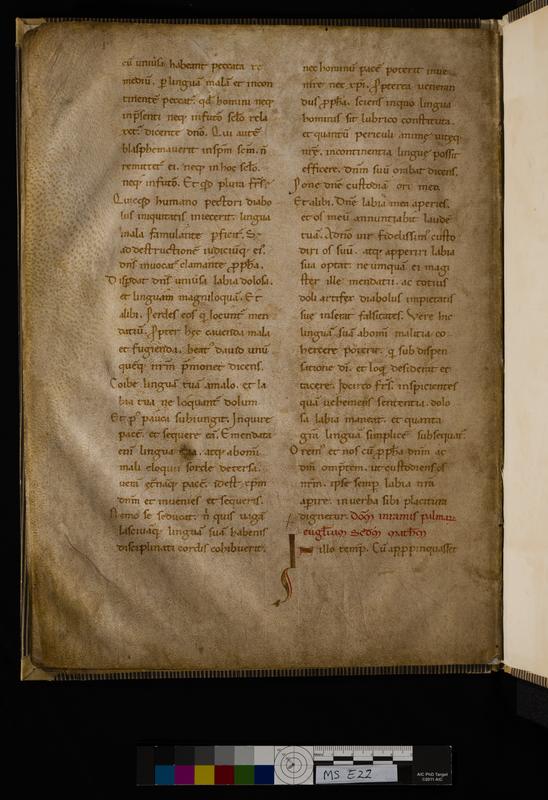 cū uniuſa habeant peccata re
mediū. p linguā malā et incon
tinentē peccat. qđ homini neq;
in p̄senti neq; infuto sclo rela
xet᷑. dicente dn̄o. Qui autē
blasphemauerit in spm scm̄. n̄
remittet᷑ ei. neq; in hoc sclo.
neq; in futo. Et qđ plura fr̄s.
Quicqđ humano pectori diabo
lus iniquitatis iniecerit. lingua
mala famulante pficit.
ad destructionē iudiciūq; ei.
dn̄s inuocat᷑ clamante ppha.
Dispdat dn̄s uniuſa labia dolosa.
et linguam magniloquā. Et
alibi. Perdes eos q̇ locunt᷑ men
daciū. Propter hec cauenda mala
et fugienda. beat᷑ dauid unū
quēq; nrm̄ p̄monet dicens.
Cohibe linguā tuā a malo. et la
bia tua ne loquant᷑ dolum.
Et p᷑ pauca subiungit. Inquire
pacē. et sequere eā. Emendata
eni lingua tua. atq; ab om̄i
mali eloquii sorde detersa.
ueni et̄naq; pacē. idest xpm̄
dnm̄ et inuenies et sequeris.
Nemo se seducat. n̄ quis uagā
lasciuāq; linguā suā habenis
disciplinati cordis cohibuerit.
nec hominū pacē poterit inue
nire nec xpi. Propterea ueneran
dus ppha. sciens in quo lingua
hominis sit lubrico constituta.
et quantū periculi anime uiteq;
nrē. incontinentia lingue possit
efficere. dnm̄ suū orabat dicens.
Pone dn̄e custodiā ori meo.
Et alibi. Dn̄e labia mea aperies.
et os meū annuntiabit laudē
tuā. A dn̄o uir fidelissim᷑ custo
diri os suū. atq; apperiri labia
sua optat. ne umquā ei magi
ster ille mendacii. ac totius
doli artifex diabolus impietatis
sue inserat falsitates. Vere hic
linguā suā ab om̄i malitia co
hercere poterit. q̇ sub dispen
satione dī. et loq̇ desiderat et
tacere. Idcirco fr̄s. inspicientes
quā uehemens sententia. dolo
sa labia maneat. et quanta
grā linguā simplicē subsequat᷑.
Orem᷑ et nos cū ppha dnm̄ ac
dm̄ omptem. ut custodiens os
nrm̄. ipse semp labia nrā
apire. in uerba sibi placitura
dignetur. Dom̄ in ramis palmarꝫ
euglium Scdm Mathm
In illo temp. Cū appropinquasset